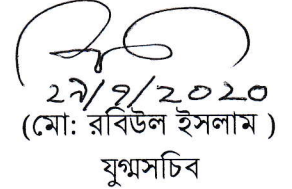 ২৯/৭/২০২০
(মো: রবিউল ইসলাম )
যুগ্মসচিব